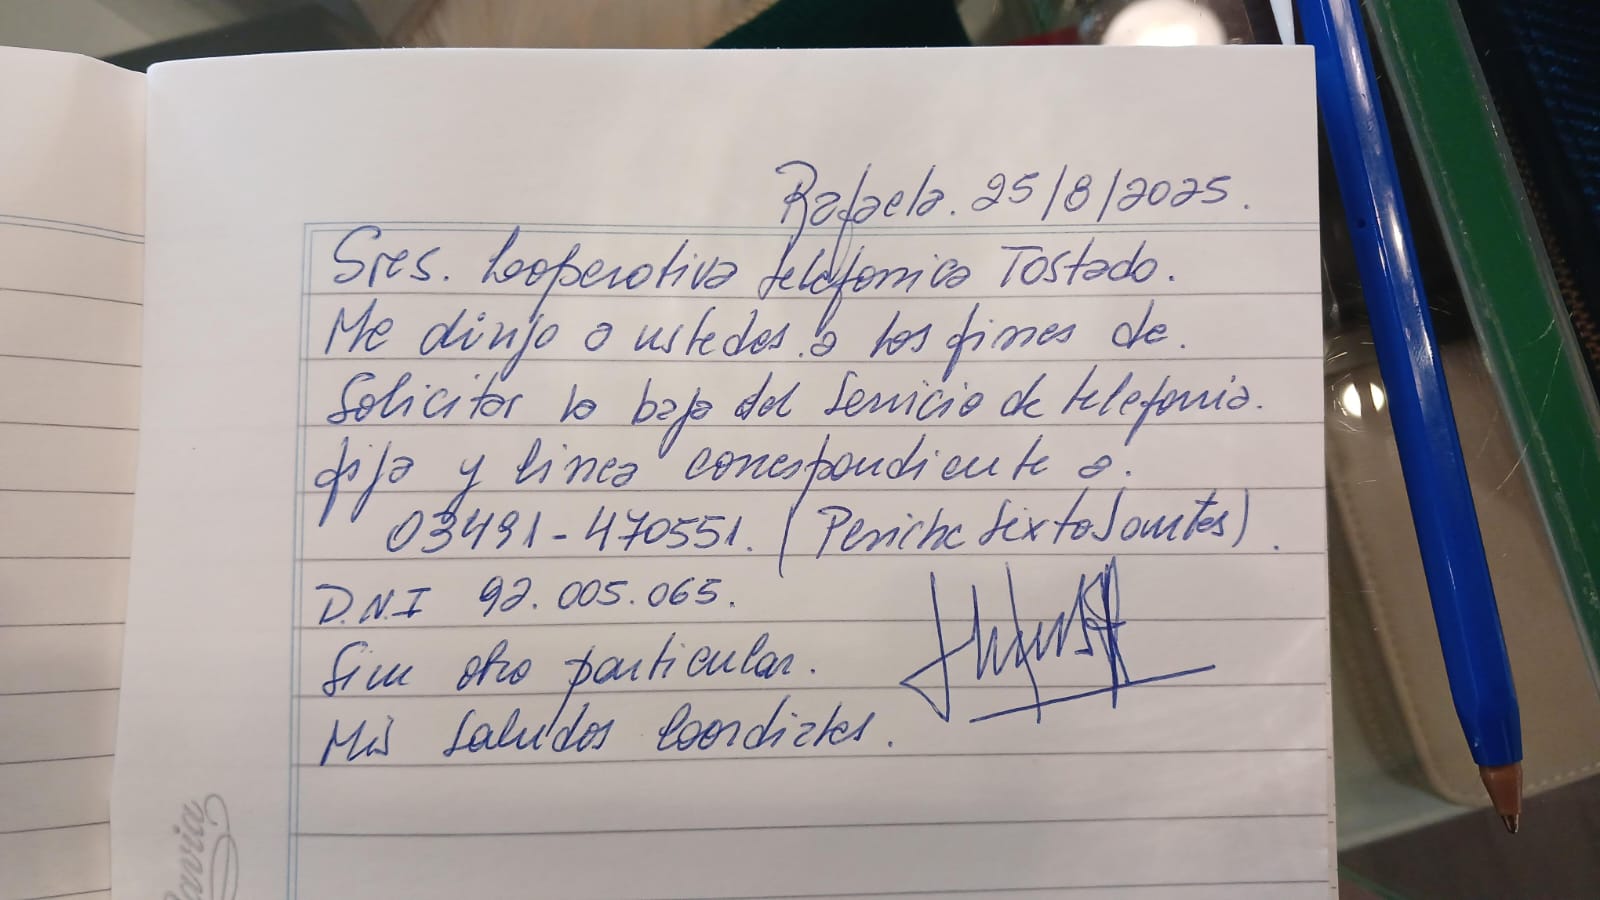 Rafaela. 25/8/2025.
Sres. Cooperativa telefonica Tostado.
Me dirijo a ustedes. a los fines de.
Solicitar la baja del Servicio de telefonia.
fija y linea correspondiente a.
03491-470551. (Peniche Sixto Santes).
D.N.I 92.005.065.
Sin otro particular.
Mis Saludos Coordiales.